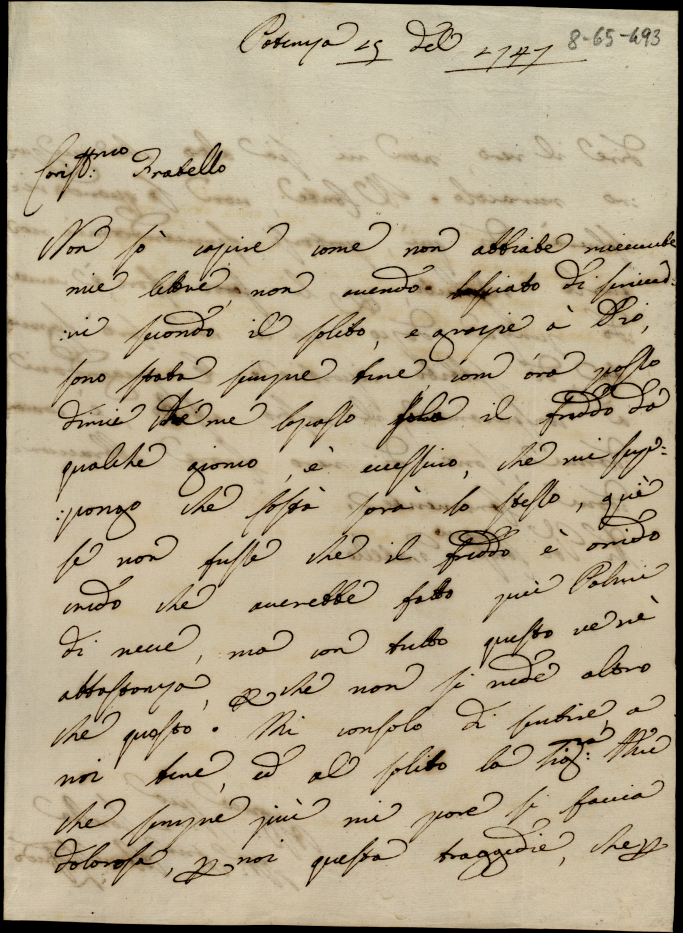 Potenza 25 del 1747
8-65-493
Cariss:mo Fratello
Non sò capire come non abbiate riceuute
mie lettere, non auendo lasciato di scriuer:
:ui secondo il solito, e grazie à Dio,
sono stata sempre bene, com' ora posso
dirue che me la passo il freddo da
qualche giorno, è eccessiuo, che mi sup:
:pongo che costà sarà lo stesso, quì
se non fusse che il freddo è arido
arido che auerebbe fatto più Palmi
di neue, ma con tutto questo ue n'è
abbastanza, che non si uede altro
che questo. Mi consolo di sentire, a
uoi bene, ed al solito la Sig:ra
che sempre più mi pare si faccia
dolorosa, p uoi questa traggedie, che p